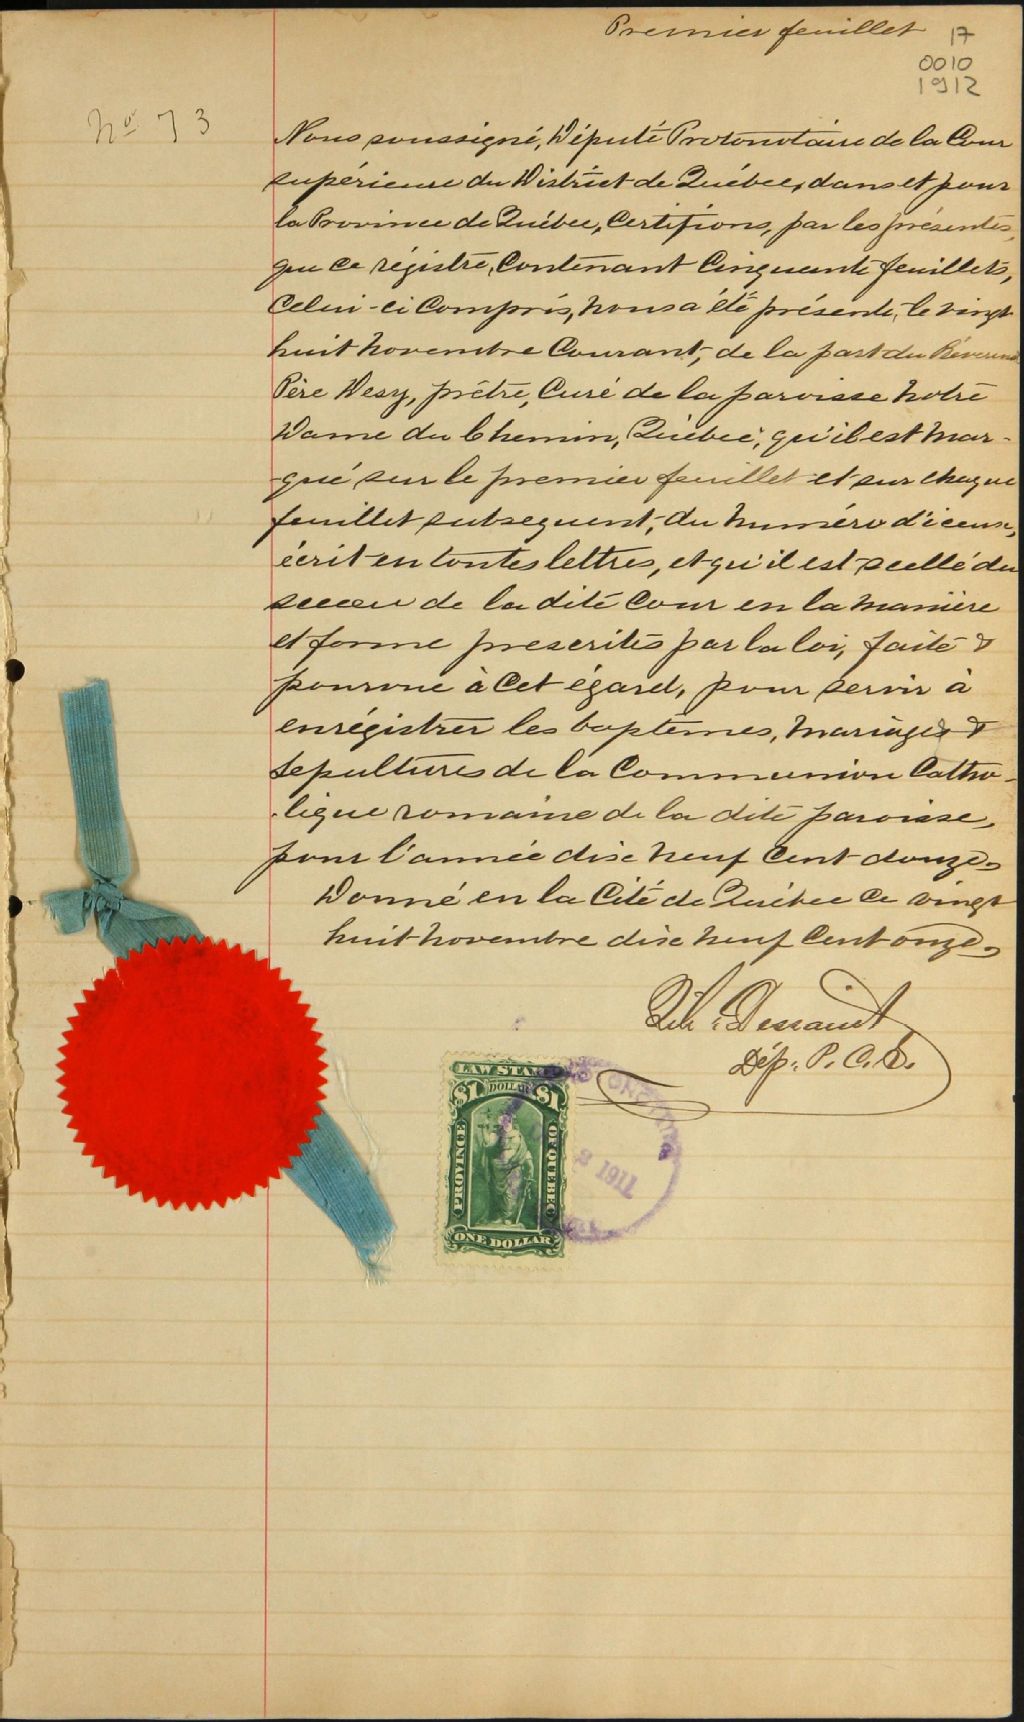 Premier feuillet
17
0010
1912
No 73
Nous soussigné, Député Protonotaire de la Cour
supérieure du District de Québec, dans et pour
la Province de Québec, Certifions, par les présentes,
que ce régistre, Contenant Cinquante feuillets,
Celui-ci Compris, nous a été présenté, le vingt
huit novembre Courant, de la part du Révérend
Père Désy, prêtre, Curé de la paroisse Notre
Dame du Chemin, Québec, qu'il est mar-
qué sur le premier feuillet et sur chaque
feuillet subsequent, du numéro d'iceux,
écrit en toutes lettres, et qu'il est scellé du
sceau de la dite Cour en la manière
et forme prescrites par la loi, faite &
pourvue à Cet égard, pour servir à
enrégistrer les baptêmes, mariages &
Sepultures de la Communion Catho-
lique romaine de la dite paroisse,
pour l'année dix neuf Cent douze.
Donné en la Cité de Québec ce vingt
huit novembre dix neuf Cent onze.
Dép. P. C. S.
LAW STAMP
$1 DOLLAR $1
PROVINCE OF QUEBEC
ONE DOLLAR
1911